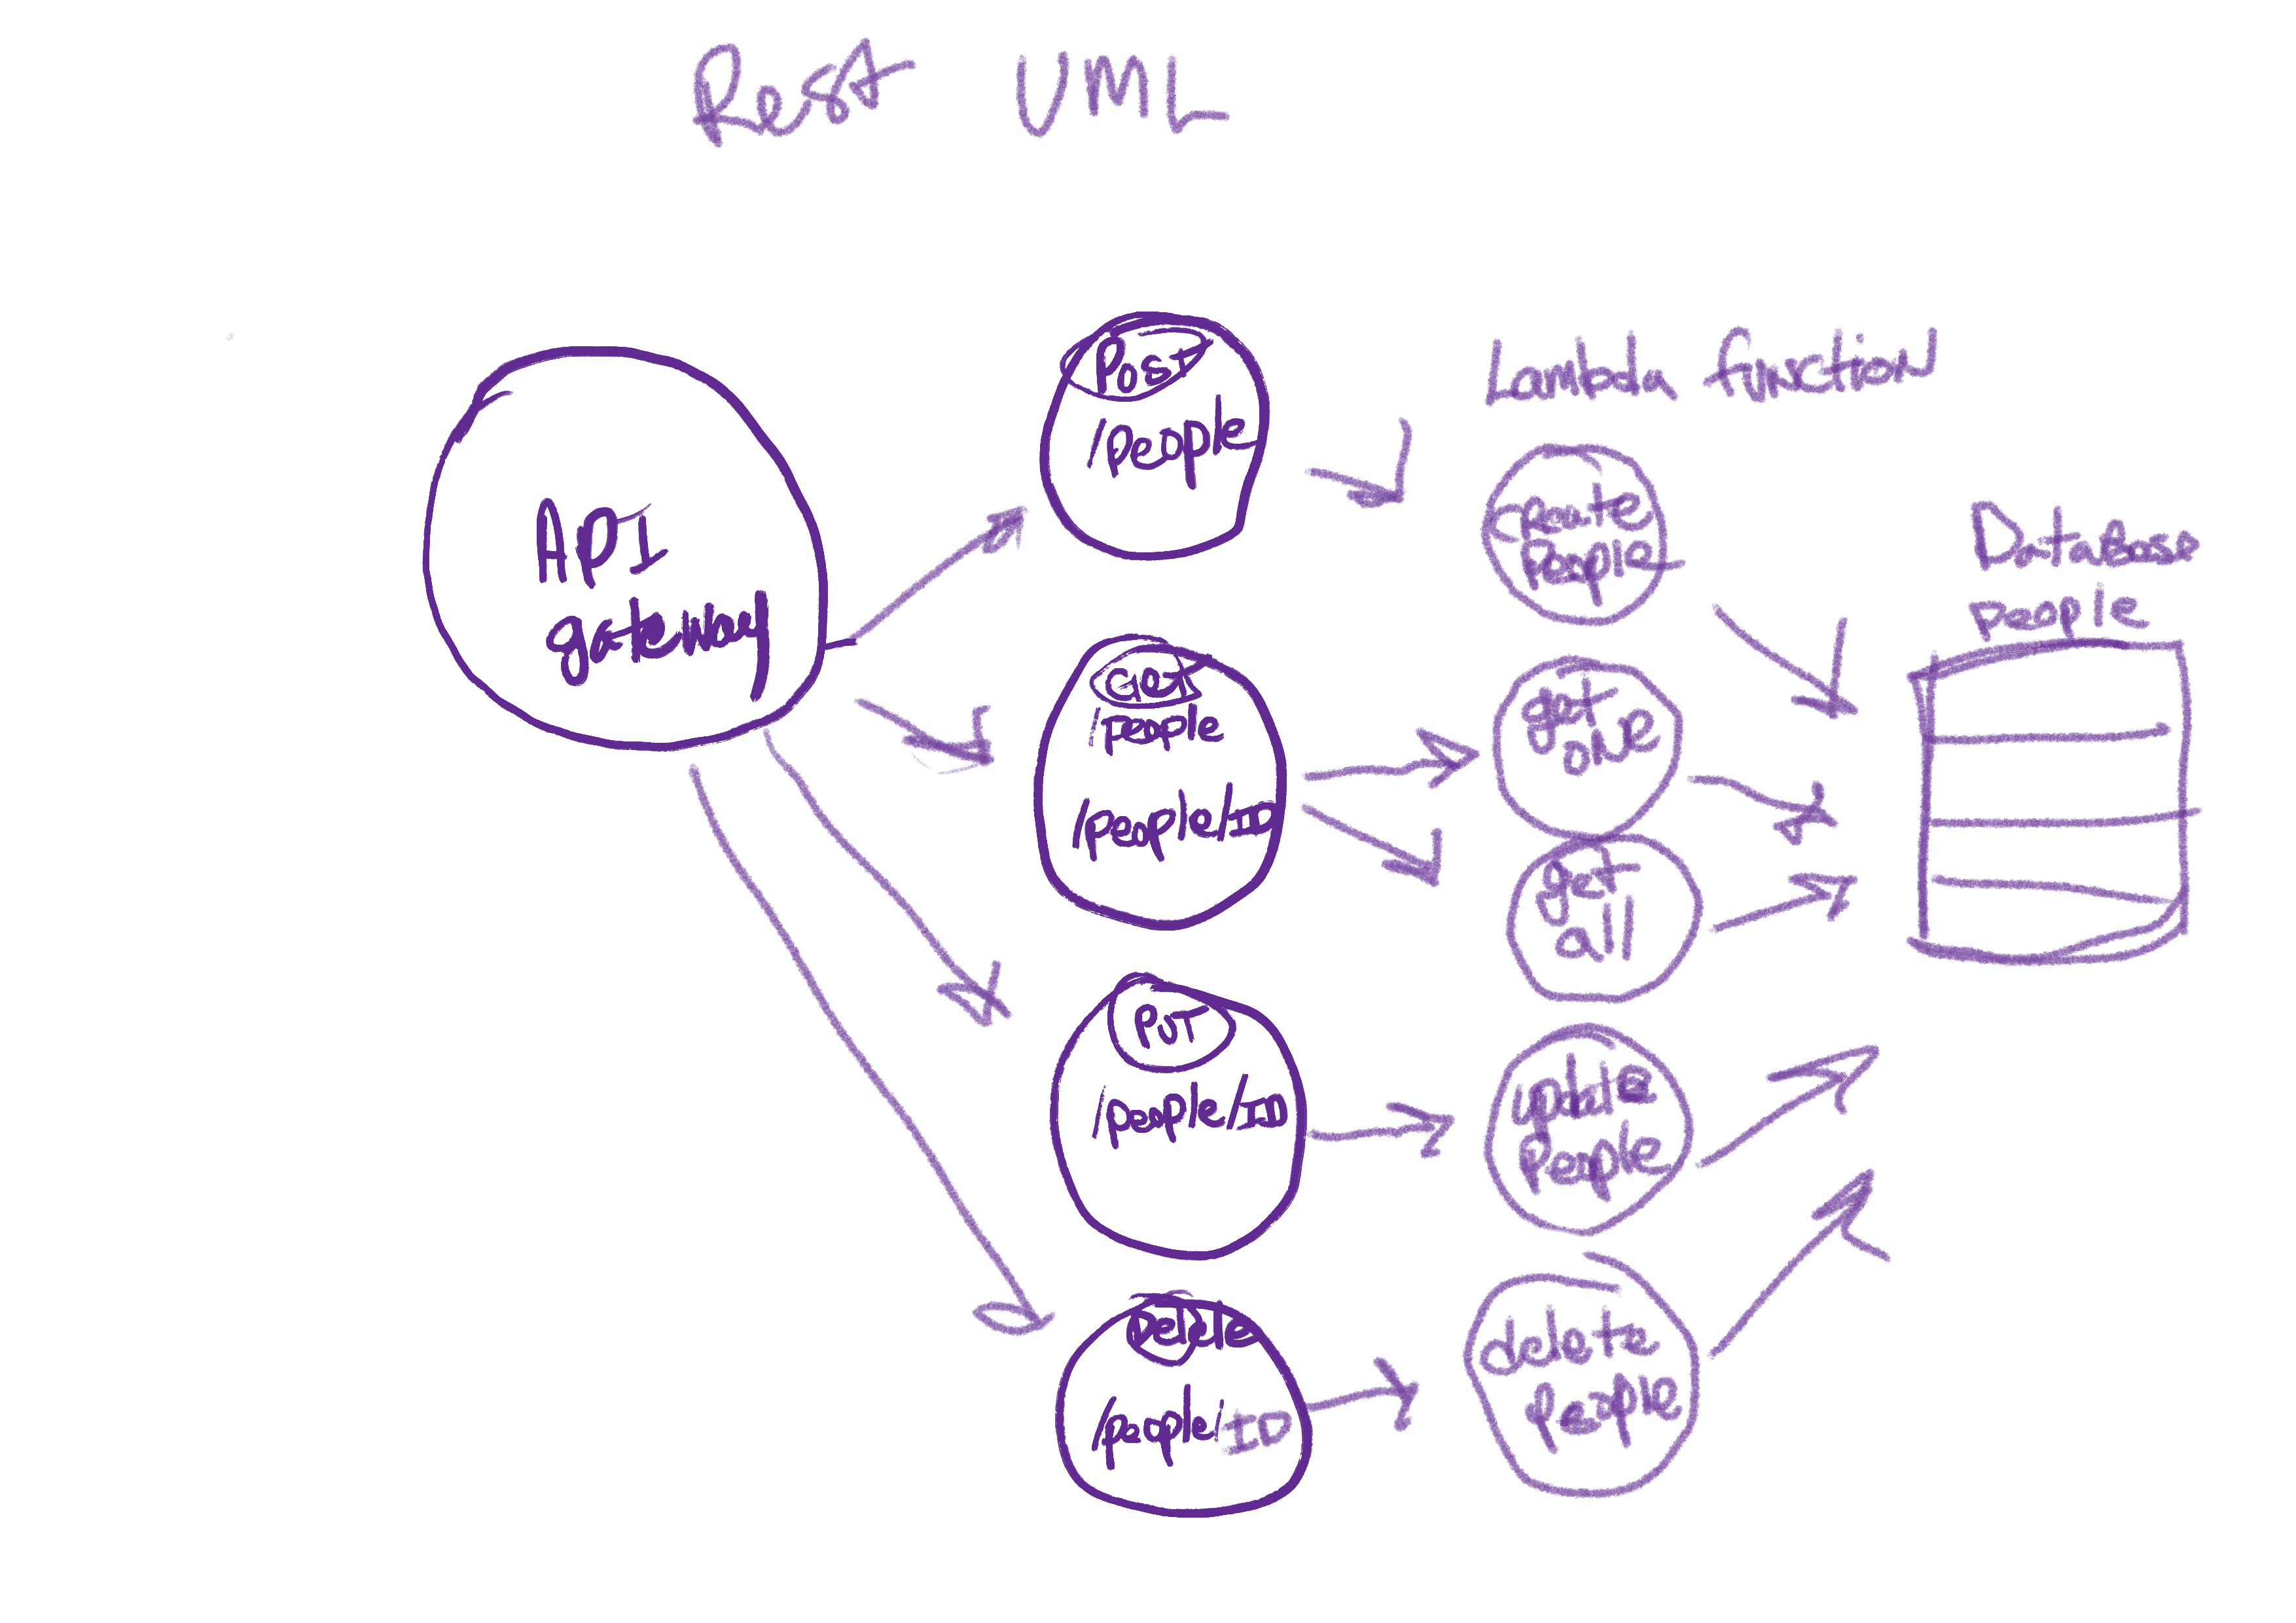 Rest UML
API
gateway
Post
/people
Get
/people
/people/ID
PUT
/people/ID
Delete
/people/ID
Lambda function
Create
People
get
one
get
all
update
People
delete
people
DataBase
people